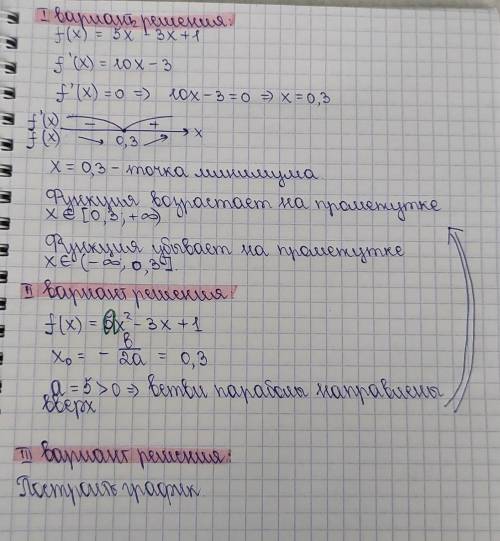 I вариант решения:
f(x) = 5x - 3x + 1
f'(x) = 10x - 3
f'(x) = 0 => 10x - 3 = 0 => x = 0,3
f'(x) - +
f(x) 0,3 x
x = 0,3 - точка минимума
Функция возрастает на промежутке
x ∈ [0,3; +∞)
Функция убывает на промежутке
x ∈ (-∞; 0,3].
II вариант решения:
f(x) = 5x² - 3x + 1
x₀ = - в/2a = 0,3
a = 5 > 0 => ветви параболы направлены
вверх
III вариант решения:
Построить график